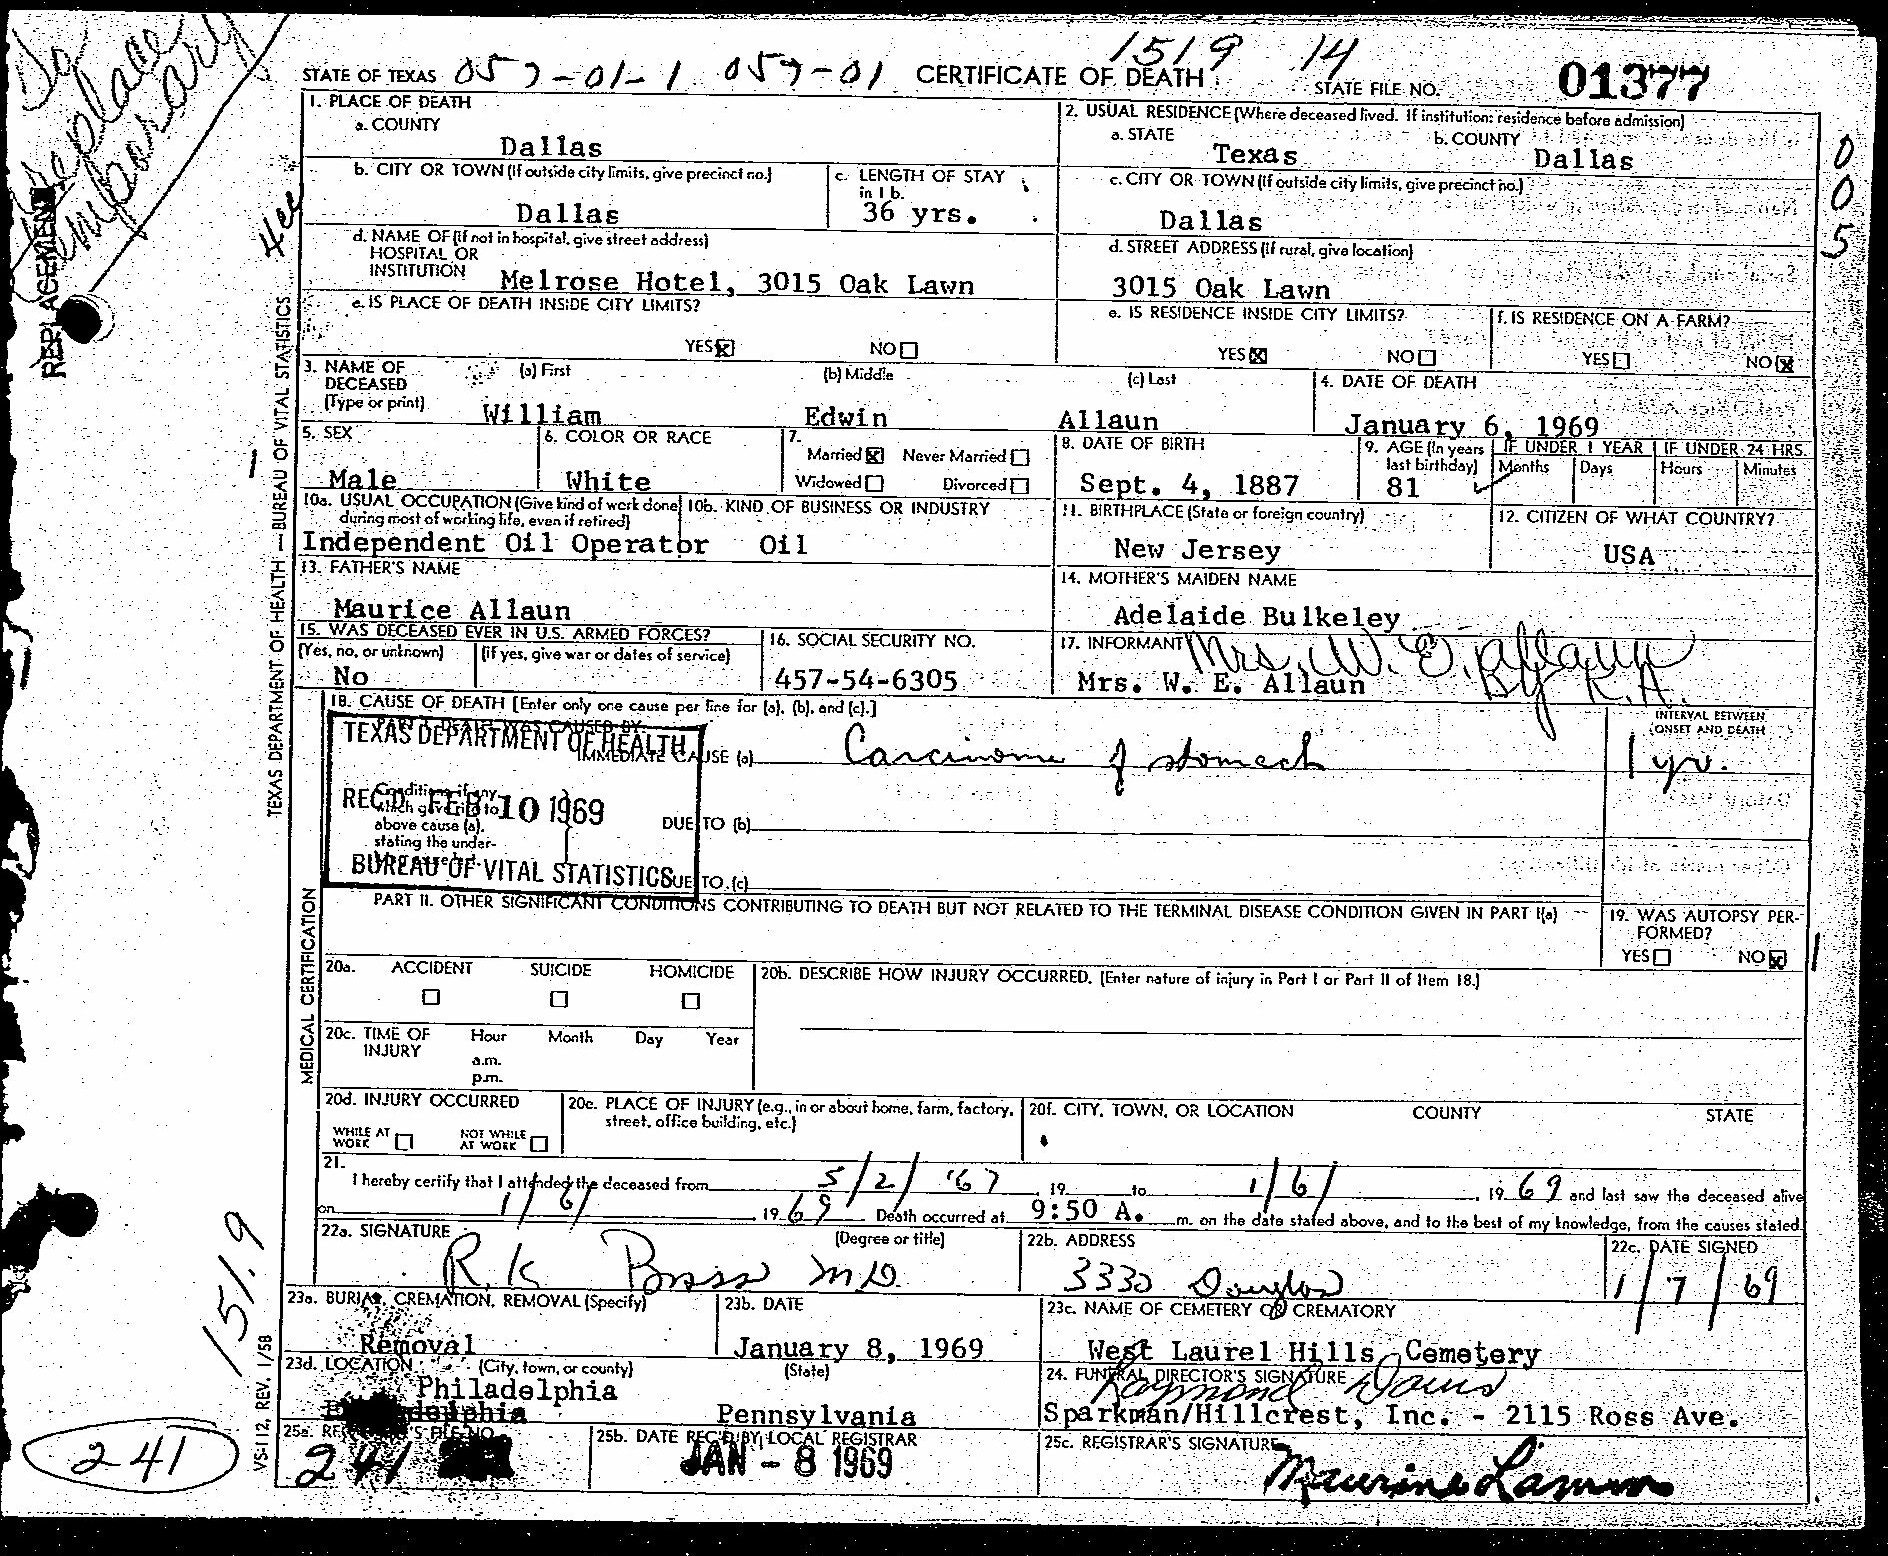 To Replace Temporary
REPLACEMENT
1519 14
STATE OF TEXAS 057-01-1 057-01 CERTIFICATE OF DEATH STATE FILE NO. 01377
1. PLACE OF DEATH
a. COUNTY
Dallas
2. USUAL RESIDENCE (Where deceased lived. If institution: residence before admission)
a. STATE b. COUNTY
Texas Dallas
b. CITY OR TOWN (If outside city limits, give precinct no.)
Dallas
c. LENGTH OF STAY
in 1 b.
36 yrs.
c. CITY OR TOWN (If outside city limits, give precinct no.)
Dallas
0
0
5
d. NAME OF (If not in hospital, give street address)
HOSPITAL OR
INSTITUTION
Melrose Hotel, 3015 Oak Lawn
d. STREET ADDRESS (If rural, give location)
3015 Oak Lawn
e. IS PLACE OF DEATH INSIDE CITY LIMITS?
YES NO
e. IS RESIDENCE INSIDE CITY LIMITS?
YES NO
f. IS RESIDENCE ON A FARM?
YES NO
3. NAME OF
DECEASED
(Type or print)
(a) First (b) Middle (c) Last
William Edwin Allaun
4. DATE OF DEATH
January 6, 1969
5. SEX
Male
6. COLOR OR RACE
White
7.
Married Never Married
Widowed Divorced
8. DATE OF BIRTH
Sept. 4, 1887
9. AGE (In years
last birthday)
81
IF UNDER 1 YEAR IF UNDER 24 HRS.
Months Days Hours Minutes
10a. USUAL OCCUPATION (Give kind of work done
during most of working life, even if retired)
Independent Oil Operator
10b. KIND OF BUSINESS OR INDUSTRY
Oil
11. BIRTHPLACE (State or foreign country)
New Jersey
12. CITIZEN OF WHAT COUNTRY?
USA
13. FATHER'S NAME
Maurice Allaun
14. MOTHER'S MAIDEN NAME
Adelaide Bulkeley
15. WAS DECEASED EVER IN U.S. ARMED FORCES?
(Yes, no, or unknown) (If yes, give war or dates of service)
No
16. SOCIAL SECURITY NO.
457-54-6305
17. INFORMANT Mrs. W. E. Allaun
Mrs. W. E. Allaun By R.A.
TEXAS DEPARTMENT OF HEALTH — BUREAU OF VITAL STATISTICS
MEDICAL CERTIFICATION
18. CAUSE OF DEATH [Enter only one cause per line for (a), (b), and (c).]
PART I. DEATH WAS CAUSED BY:
IMMEDIATE CAUSE (a) Carcinoma of stomach
INTERVAL BETWEEN
ONSET AND DEATH
1 yr.
TEXAS DEPARTMENT OF HEALTH
REC'D FEB 10 1969
BUREAU OF VITAL STATISTICS
Conditions, if any,
which gave rise to
above cause (a),
stating the under-
lying cause last.
DUE TO (b)
DUE TO (c)
PART II. OTHER SIGNIFICANT CONDITIONS CONTRIBUTING TO DEATH BUT NOT RELATED TO THE TERMINAL DISEASE CONDITION GIVEN IN PART I(a)
19. WAS AUTOPSY PER-
FORMED?
YES NO
20a. ACCIDENT SUICIDE HOMICIDE
20b. DESCRIBE HOW INJURY OCCURRED. (Enter nature of injury in Part I or Part II of Item 18.)
20c. TIME OF
INJURY
Hour Month Day Year
a.m.
p.m.
20d. INJURY OCCURRED
WHILE AT
WORK
NOT WHILE
AT WORK
20e. PLACE OF INJURY (e.g., in or about home, farm, factory,
street, office building, etc.)
20f. CITY, TOWN, OR LOCATION COUNTY STATE
21.
I hereby certify that I attended the deceased from 5/2/'67, 19 to 1/6/, 1969 and last saw the deceased alive
on 1/6/ 1969 Death occurred at 9:50 A. m. on the date stated above, and to the best of my knowledge, from the causes stated.
22a. SIGNATURE (Degree or title)
R. K. Bass MD
22b. ADDRESS
3330 Douglas
22c. DATE SIGNED
1/7/69
23a. BURIAL, CREMATION, REMOVAL (Specify)
Removal
23b. DATE
January 8, 1969
23c. NAME OF CEMETERY OR CREMATORY
West Laurel Hills Cemetery
23d. LOCATION (City, town, or county) (State)
Philadelphia
Philadelphia Pennsylvania
24. FUNERAL DIRECTOR'S SIGNATURE
Raymond Davis
Sparkman/Hillcrest, Inc. - 2115 Ross Ave.
25a. REGISTRAR'S FILE NO.
241
25b. DATE REC'D BY LOCAL REGISTRAR
JAN - 8 1969
25c. REGISTRAR'S SIGNATURE
1519
VS-112, REV. 1/58
241